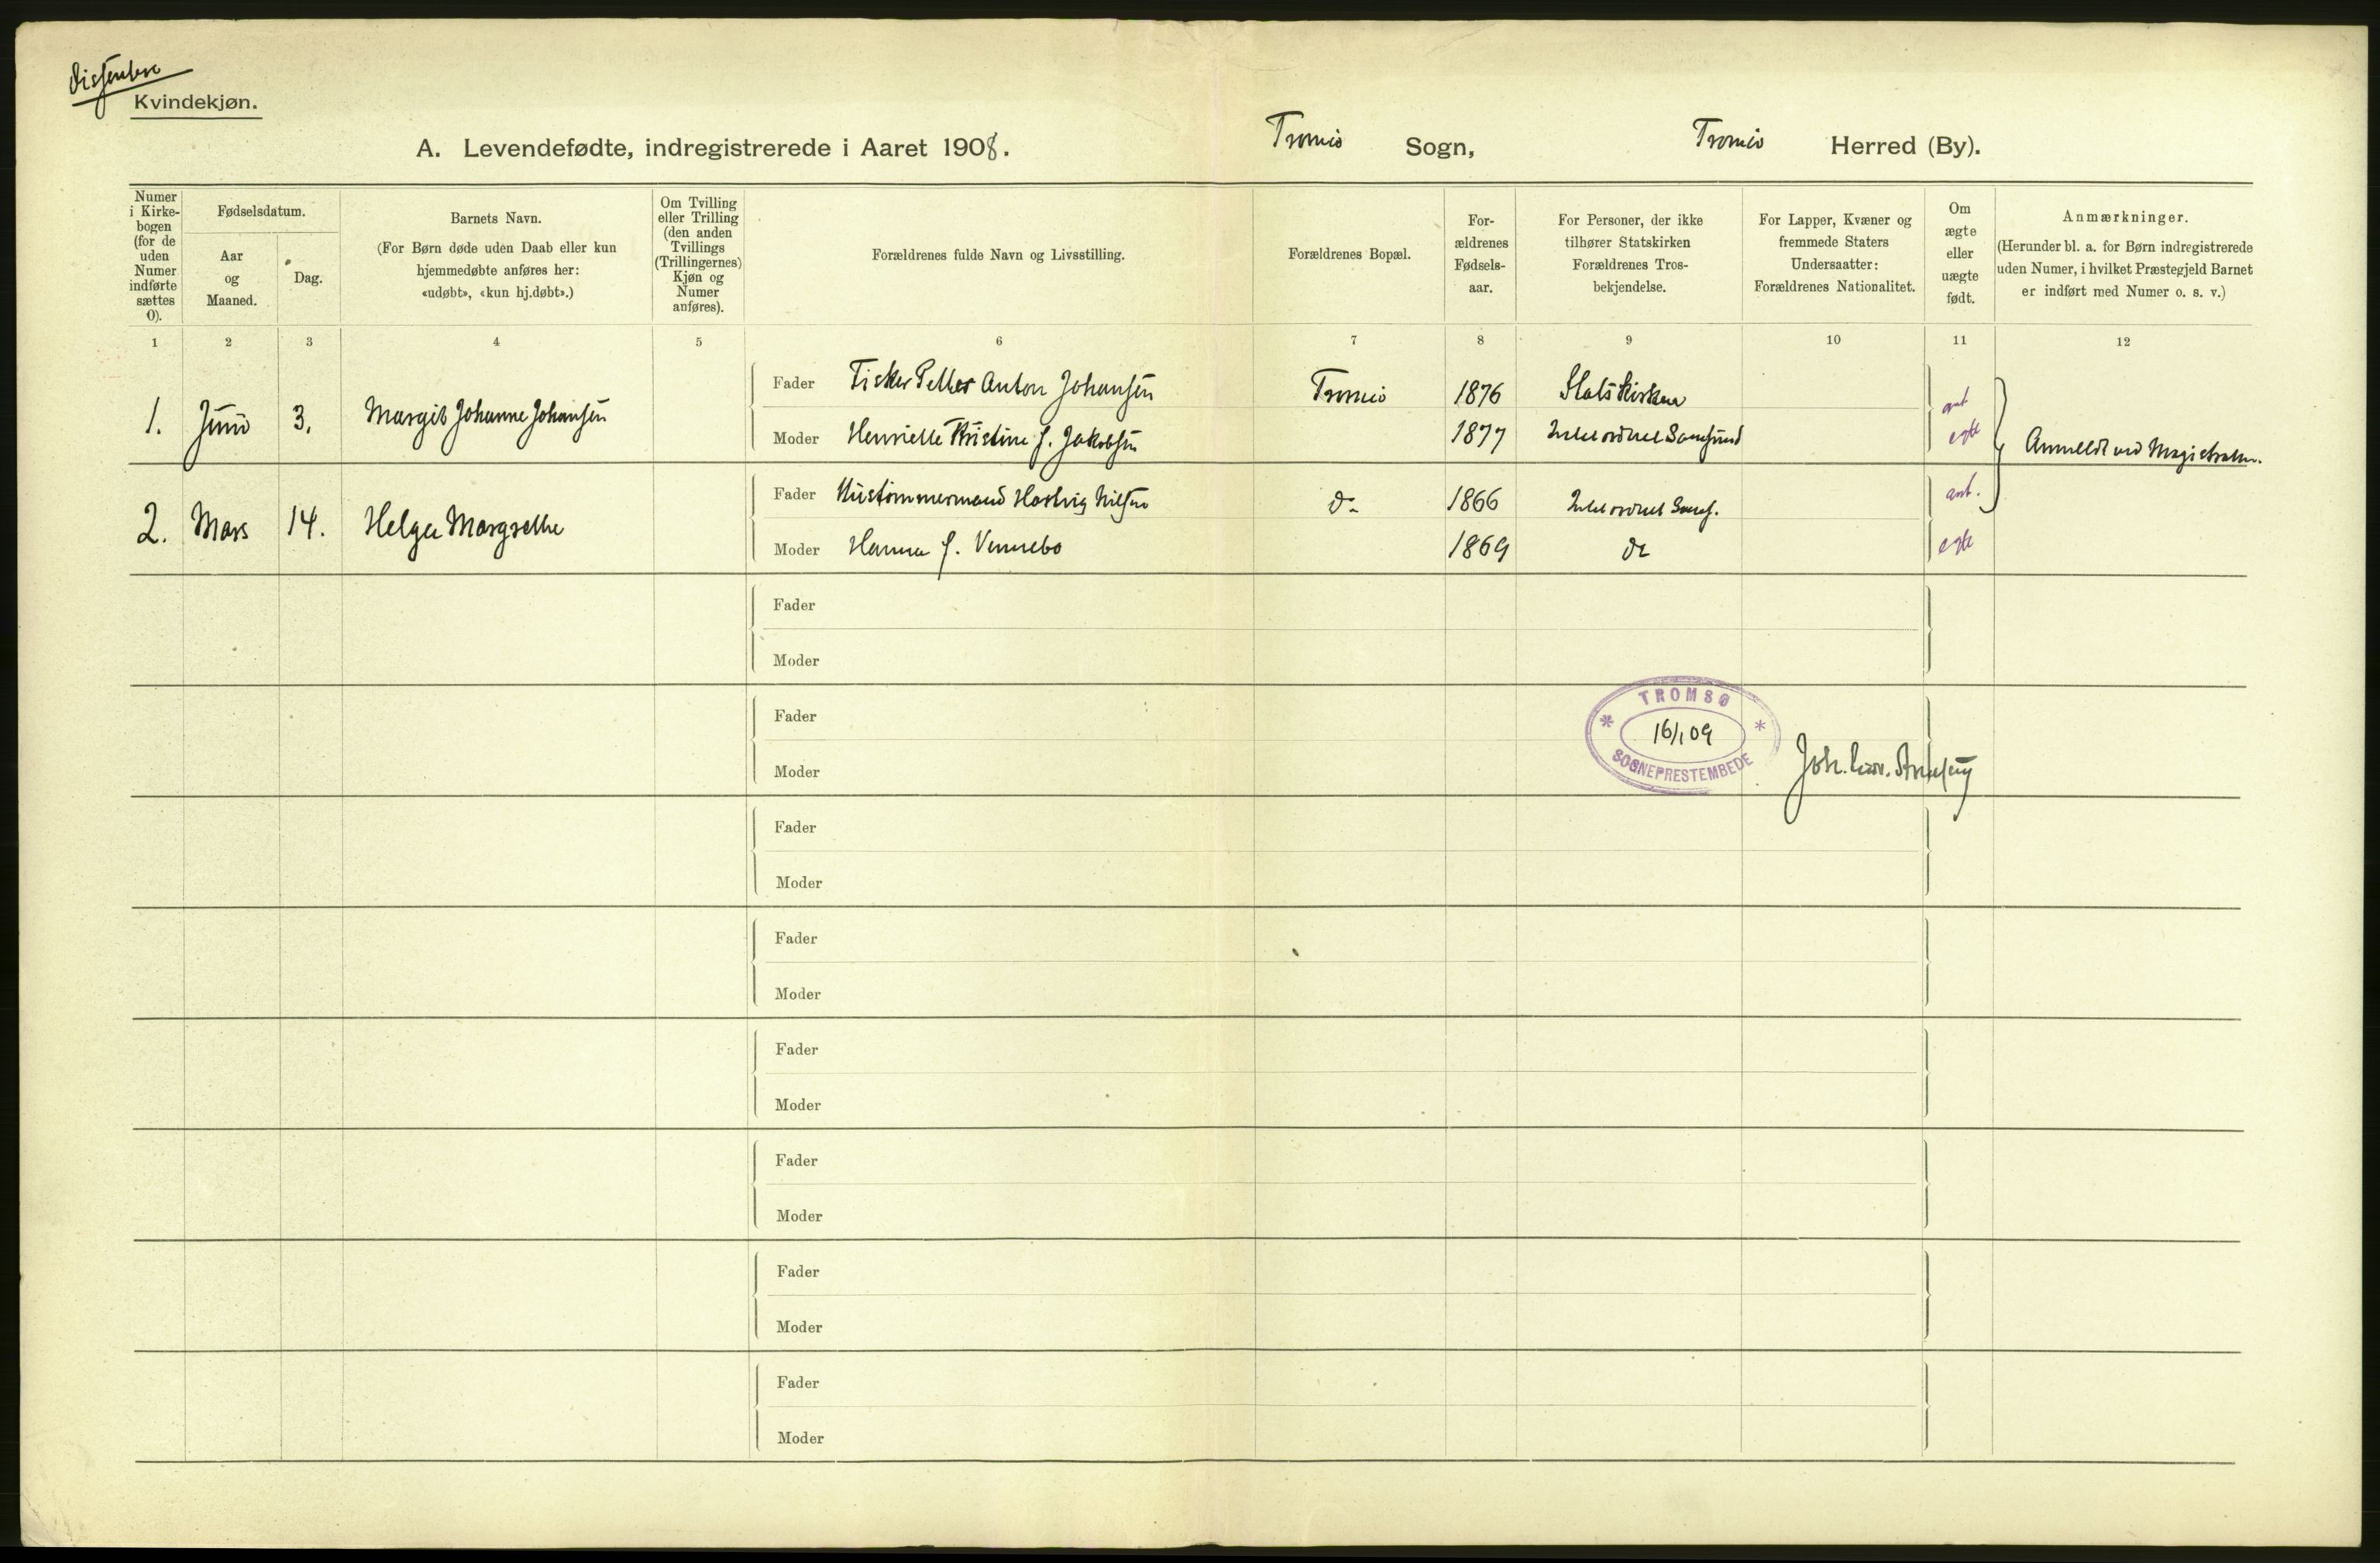 Dissentere
Kvindekjøn.
A. Levendefødte, indregistrerede i Aaret 1908. Tromsø Sogn, Tromsø Herred (By).
Numer i Kirke-bogen (for de uden Numer indførte sættes 0).
Fødselsdatum.
Aar og Maaned.
Dag.
Barnets Navn.
(For Børn døde uden Daab eller kun hjemmedøbte anføres her: «udøbt», «kun hj.døbt».)
Om Tvilling eller Trilling (den anden Tvillings (Trillingernes) Kjøn og Numer anføres).
Forældrenes fulde Navn og Livsstilling.
Forældrenes Bopæl.
For-ældrenes Fødsels-aar.
For Personer, der ikke tilhører Statskirken Forældrenes Tros-bekjendelse.
For Lapper, Kvæner og fremmede Staters Undersaatter: Forældrenes Nationalitet.
Om ægte eller uægte født.
Anmærkninger.
(Herunder bl. a. for Børn indregistrerede uden Numer, i hvilket Præstegjeld Barnet er indført med Numer o. s. v.)
1 2 3 4 5 6 7 8 9 10 11 12
Fader Fisker Petter Anton Johansen Tromsø 1876 Statskirken
1. Juni 3. Margit Johanne Johansen
Moder Henriette Kristine f. Jakobsen 1877 Samfund egte
Anmeldt ved Magistraten.
Fader Hustømmermand Hartvig Nilsen do 1866 Samf.
2. Mars 14. Helga Margrethe
Moder Hanna f. Vennebo 1869 do egte
Fader
Moder
Fader
Moder
TROMSØ
16/1 09
SOGNEPRESTEMBEDE
Joh.
Fader
Moder
Fader
Moder
Fader
Moder
Fader
Moder
Fader
Moder
Fader
Moder